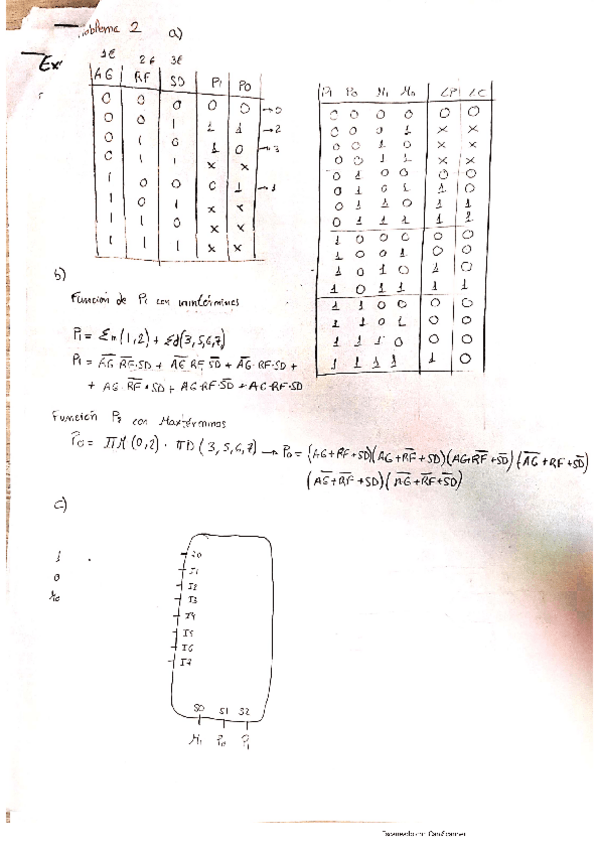 Problema 2 a)
Ex
1€ 2€ 3€
AG RF SD P1 P0
0 0 0 0 0 → 0
0 0 1 1 1 → 2
0 1 0 1 0 → 3
0 1 1 x x
1 0 0 0 1 → 1
1 0 1 x x
1 1 0 x x
1 1 1 x x
P1 P0 M1 M0 LP LC
0 0 0 0 0 0
0 0 0 1 x x
0 0 1 0 x x
0 0 1 1 x x
0 1 0 0 0 0
0 1 0 1 1 0
0 1 1 0 1 1
0 1 1 1 1 1
1 0 0 0 0 0
1 0 0 1 0 0
1 0 1 0 1 0
1 0 1 1 1 1
1 1 0 0 0 0
1 1 0 1 0 0
1 1 1 0 0 0
1 1 1 1 1 0
b)
Función de P1 con mintérminos
P1 = Σm(1,2) + Σd(3,5,6,7)
P1 = A̅G̅·R̅F̅·SD + A̅G̅·RF·S̅D̅ + A̅G̅·RF·SD +
+ AG·R̅F̅·SD + AG·RF·S̅D̅ + AG·RF·SD
Función P2 con Maxtérminos
P0 = ΠM(0,2) · ΠD(3,5,6,7) → P0 = (AG+RF+SD)(AG+R̅F̅+SD)(AG+R̅F̅+S̅D̅)(A̅G̅+RF+S̅D̅)
(A̅G̅+R̅F̅+SD)(A̅G̅+R̅F̅+S̅D̅)
c)
1
0
M0
I0
I1
I2
I3
I4
I5
I6
I7
S0 S1 S2
M1 P0 P1
Escaneado con CamScanner